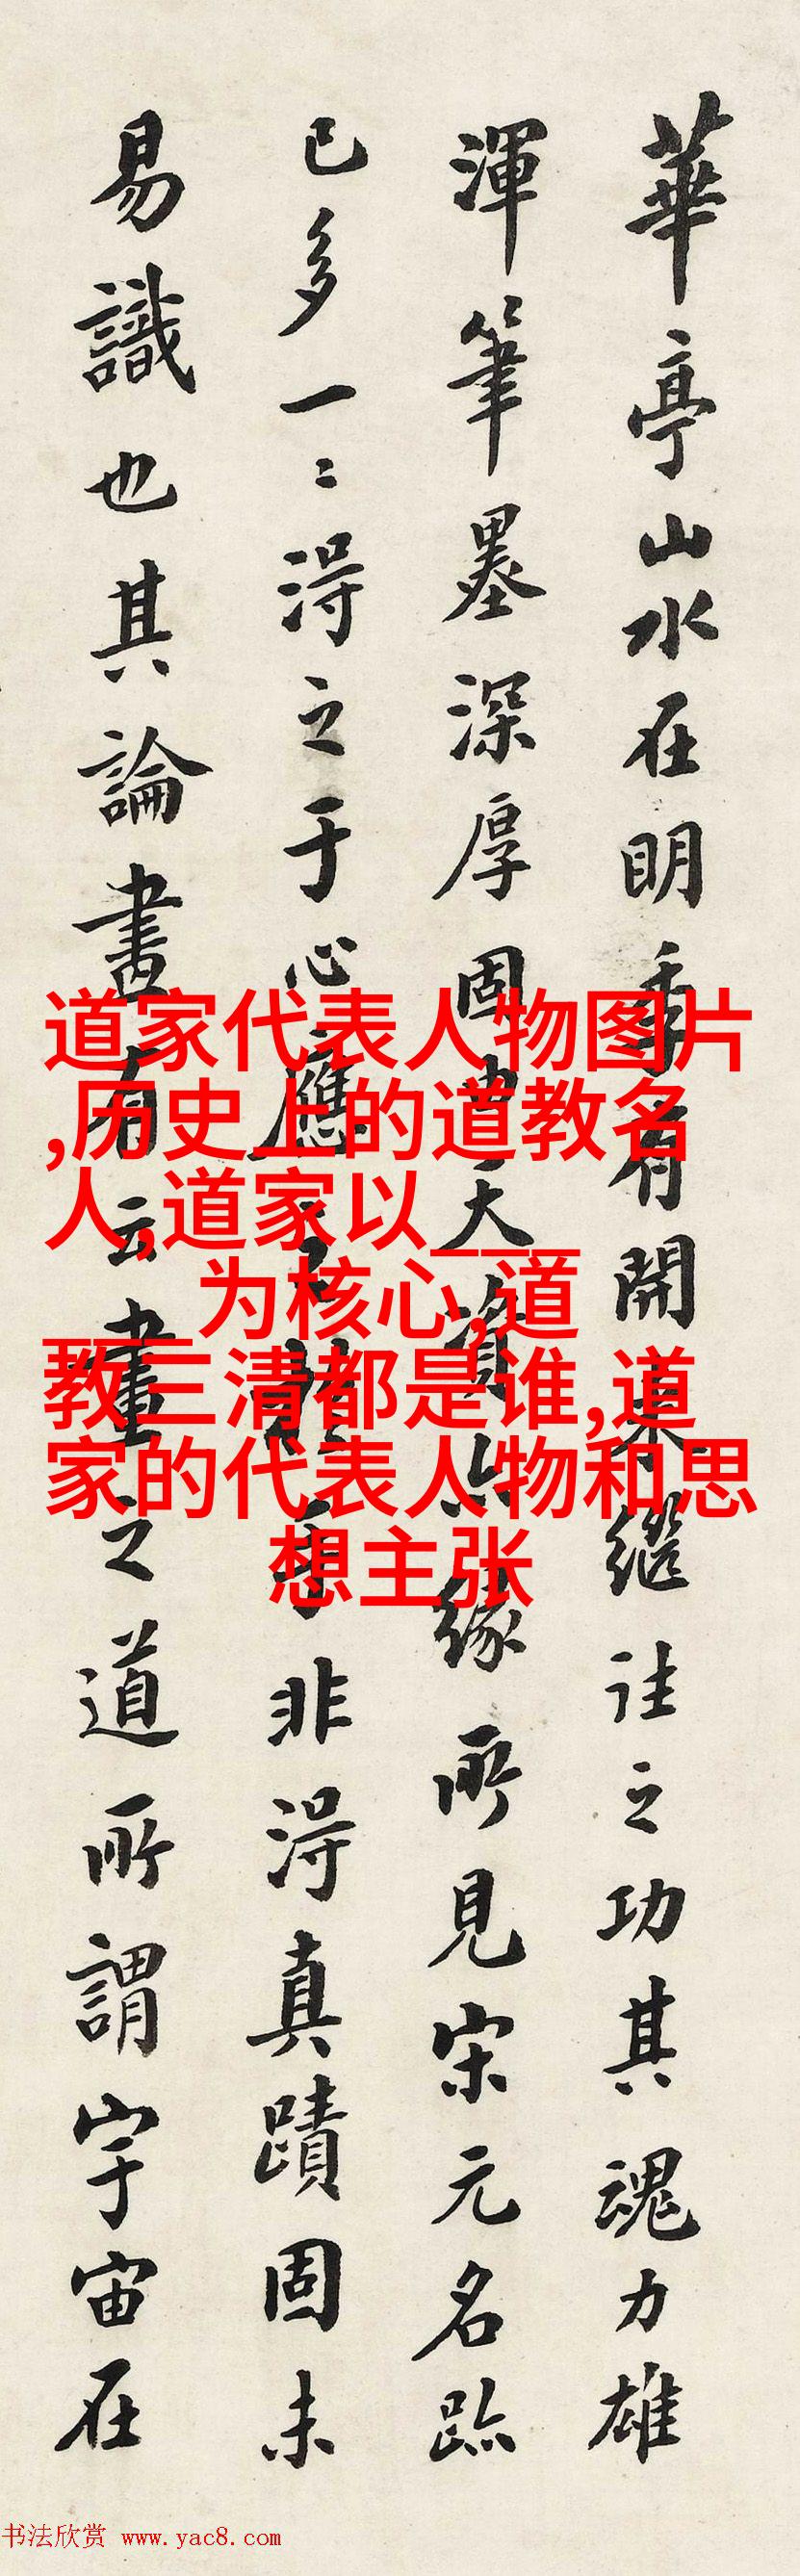 華亭山水在明季有開来繼往之功其魂力雄
渾筆墨深厚固由天資亦緣所見宋元名跡
已多一二得之于心應手非得真蹟固未
易識也其論畫有云畫之道所謂宇宙在
道家代表人物图片
,历史上的道教名
人,道家以___
___为核心,道
教三清都是谁,道
家的代表人物和思
想主张
书法欣赏 www.yac8.com